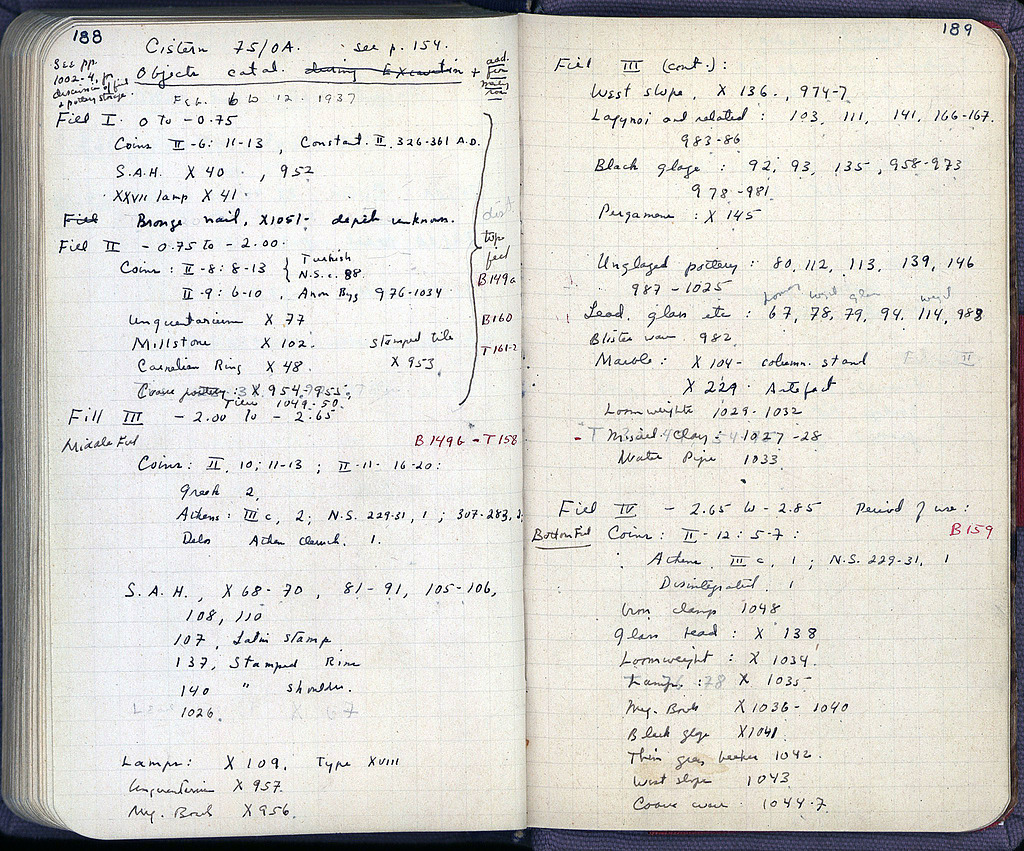 188
Cistern 75/OA. see p. 154.
See pp.
1002-4, for
discussion of fill
& pottery storage.
Objects catal. during Excavation + add. for
Feb. 6 to 12. 1937
Fill I. 0 to -0.75
Coins II-6: 11-13, Constant. II, 326-361 A.D.
S.A.H. X 40 , 952
XXVII lamp X 41
Fill Bronze nail, X1051- depth unknown.
Fill II -0.75 to -2.00.
Coins: II-8: 8-13 { Turkish
N.S. c. 88.
II-9: 6-10, Anon Byz 976-1034
Unguentarium X 77
Millstone X 102. stamped tile
Carnelian Ring X 48. X 953
Coarse pottery: X 954, 955;
Tiles 1049-50.
dist
top
fill
B149a
B160
T161-2
Fill III -2.00 to -2.65
Middle Fill
B149b - T158
Coins: II, 10; 11-13; II-11- 16-20:
Greek 2.
Athens: III c, 2; N.S. 229-31, 1; 307-283,
Delos Athen cleruch. 1.
S.A.H., X 68-70, 81-91, 105-106,
108, 110
107, Latin stamp
137, Stamped Rim
140 " shoulder.
1026.
Lamps: X 109, Type XVIII
Unguentarium X 957.
Meg. Bowl X 956.
189
Fill III (cont.):
West slope, X 136., 974-7
Lagynoi and related: 103, 111, 141, 166-167.
983-86
Black glaze: 92, 93, 135, 958-973
978-981
Pergamene: X 145
Unglazed pottery: 80, 112, 113, 139, 146
987-1025
Lead, glass etc: 67, 78, 79, 94, 114, 988
Blister ware 982.
Marble: X 104- column. stand
X 229 Artefact
Loomweights 1029-1032
Miscel. Clay: 1027-28
Water Pipe 1033
Fill IV -2.65 to -2.85 Period of use:
Bottom Fill
B159
Coins: II-12: 5-7:
Athens III c, 1; N.S. 229-31, 1
Disintegrated. 1
Iron clamp 1048
Glass bead: X 138
Loomweight: X 1034.
Lamp: X 1035
Meg. Bowls X 1036-1040
Black glaze X1041
Thin gray beaker 1042.
West slope 1043
Coarse ware 1044-7